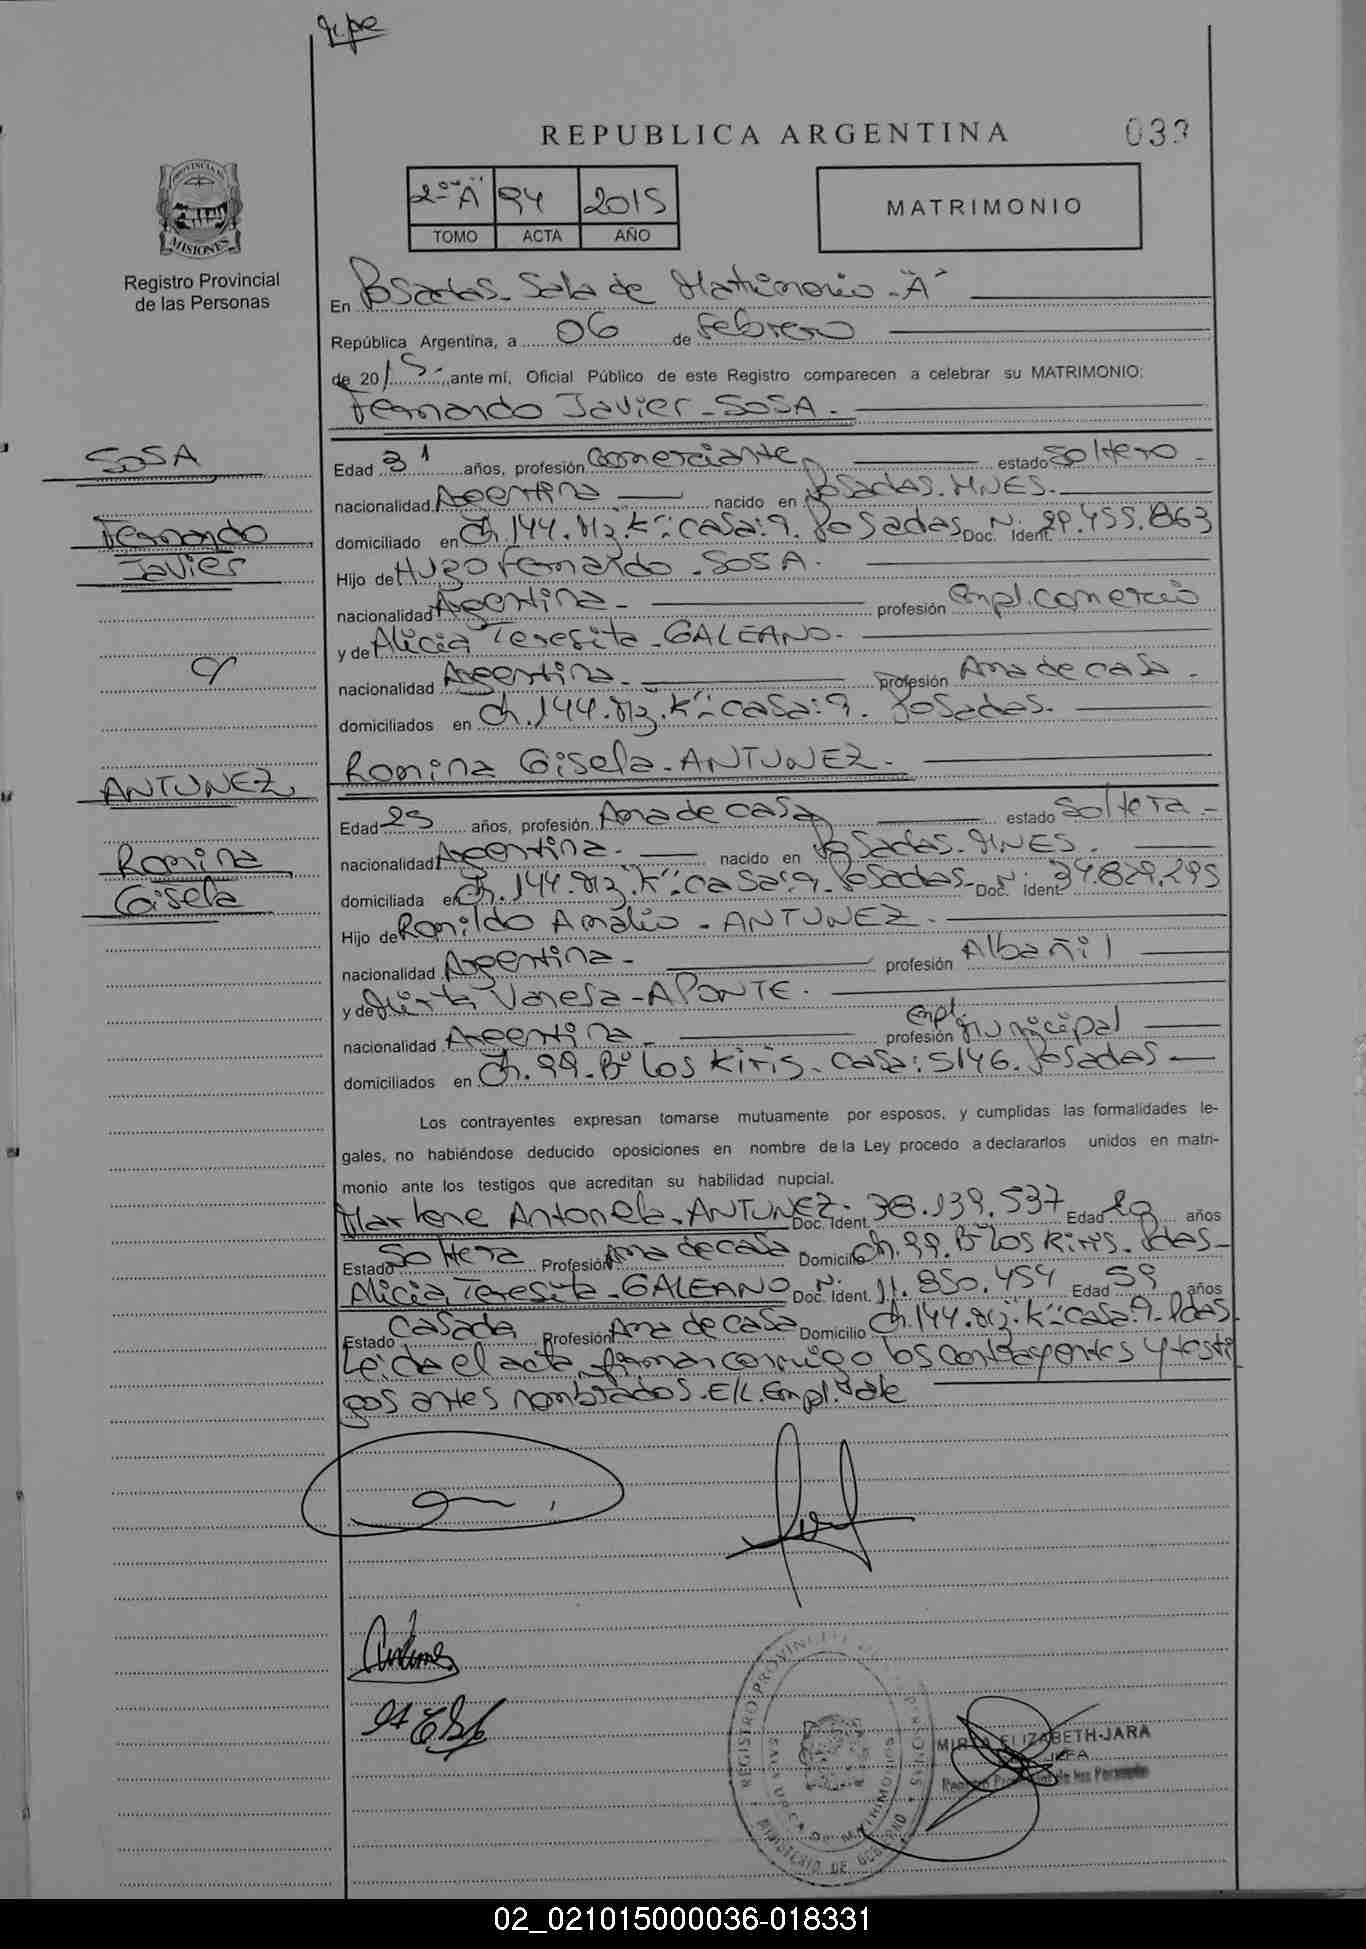 REPUBLICA ARGENTINA
PROVINCIA DE
MISIONES
Registro Provincial
de las Personas
2º "A" 94 2015
TOMO ACTA AÑO
MATRIMONIO
En Posadas - Sala de Matrimonio - "A"
República Argentina, a 06 de Febrero
de 2015, ante mí, Oficial Público de este Registro comparecen a celebrar su MATRIMONIO:
Fernando Javier - SOSA -
SOSA
Fernando
Javier
Edad 31 años, profesión Comerciante estado Soltero -
nacionalidad Argentina nacido en Posadas. MNES.
domiciliado en Ch. 144. Mz. "K" casa: 9. Posadas Doc. Ident. Nº 29.455.863
Hijo de Hugo Fernando - SOSA -
nacionalidad Argentina - profesión Empl. Comercio
y de Alicia Teresita - GALEANO -
nacionalidad Argentina - profesión Ama de casa -
domiciliados en Ch. 144. Mz. "K" casa: 9. Posadas.
Romina Gisela - ANTUNEZ -
ANTUNEZ
Romina
Gisela
Edad 25 años, profesión Ama de casa estado Soltera -
nacionalidad Argentina - nacido en Posadas. MNES.
domiciliada en Ch. 144. Mz. "K" casa: 9. Posadas - Doc. Ident. Nº 34.829.295
Hijo de Romildo Amalio - ANTUNEZ -
nacionalidad Argentina - profesión Albañil
y de Mirta Vanesa - APONTE -
nacionalidad Argentina - profesión Empl. Municipal
domiciliados en Ch. 99. Bº los Kiris - casa: 5146. Posadas
Los contrayentes expresan tomarse mutuamente por esposos, y cumplidas las formalidades le-
gales, no habiéndose deducido oposiciones en nombre de la Ley procedo a declararlos unidos en matri-
monio ante los testigos que acreditan su habilidad nupcial.
Marlene Antonela - ANTUNEZ - Doc. Ident. 38.139.537 Edad años
Estado Soltera Profesión Ama de casa Domicilio Ch. 99. Bº los Kiris. Pdas -
Alicia Teresita - GALEANO Doc. Ident. Nº 11.850.454 Edad 59 años
Estado Casada Profesión Ama de casa Domicilio Ch. 144. Mz. "K" casa 9. Pdas
Leída el acta, firman conmigo los contrayentes y testi
gos antes nombrados. E/L. Empl. Vale
REGISTRO PROVINCIAL DE LAS PERSONAS
MINISTERIO DE GOBIERNO
MIRTA ELIZABETH JARA
JEFA
Registro Provincial de las Personas
02_021015000036-018331